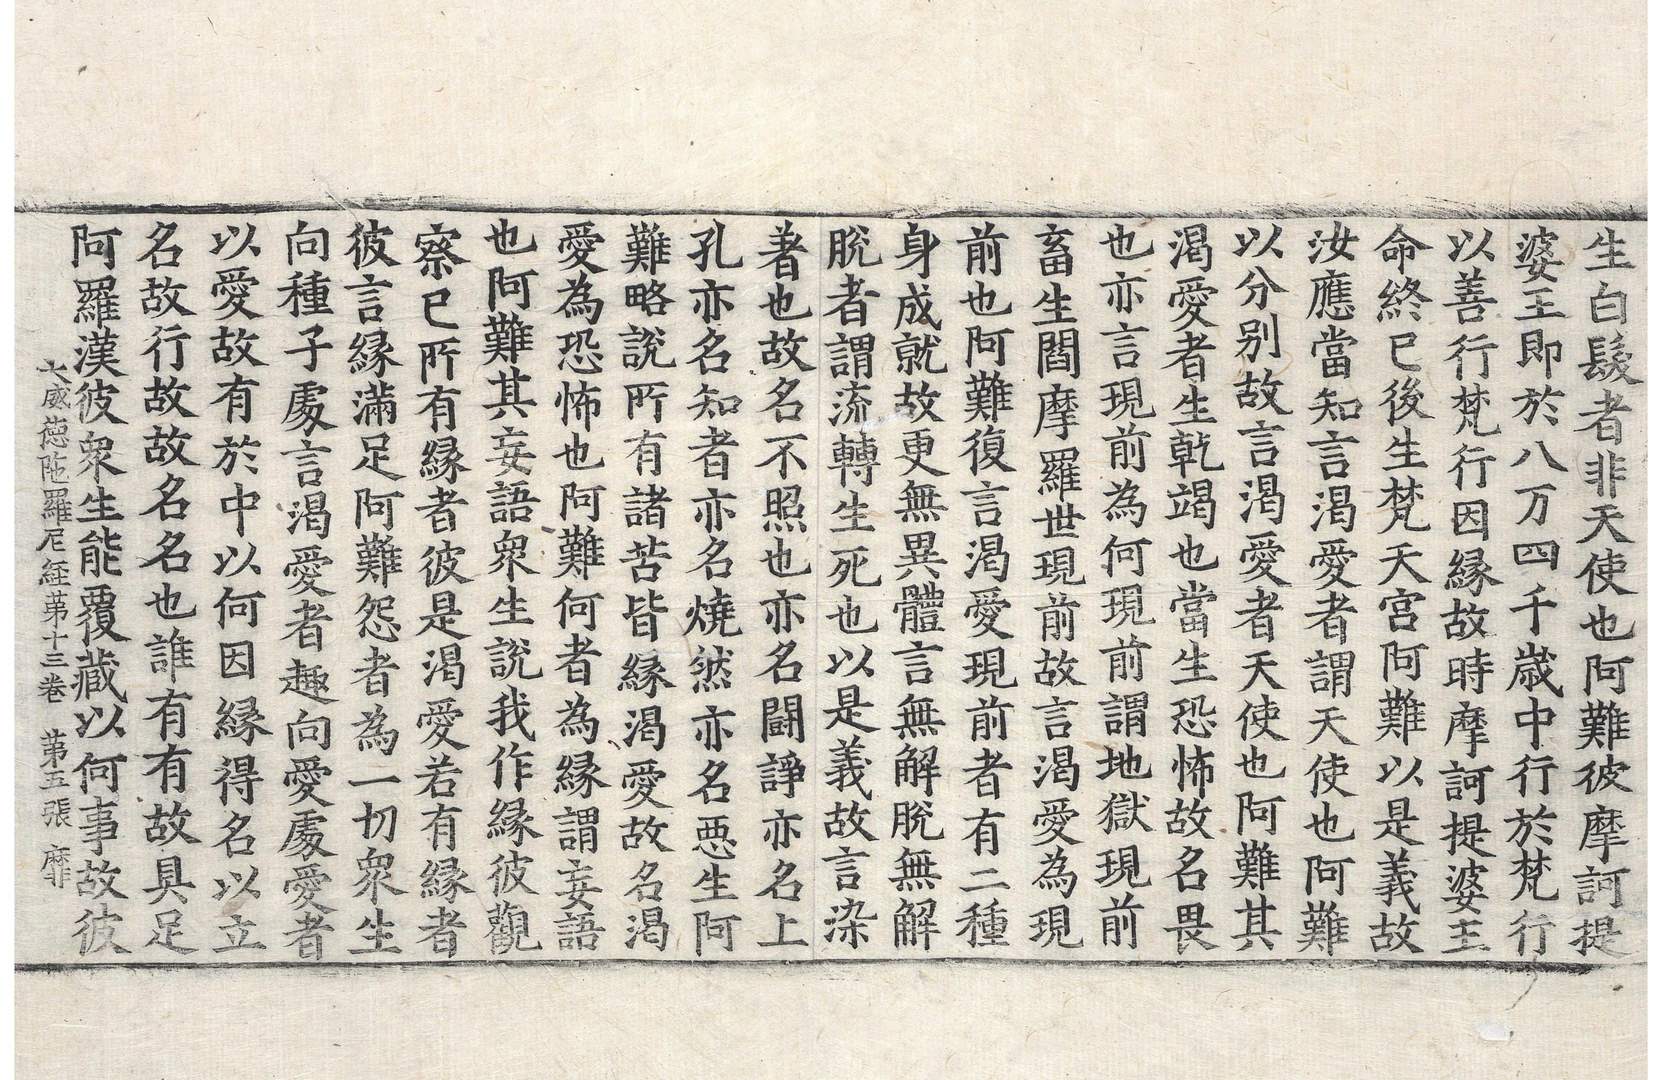 生白髮者非天使也阿難彼摩訶提
婆王即於八万四千歲中行於梵行
以善行梵行因縁故時摩訶提婆王
命終已後生梵天宮阿難以是義故
汝應當知言渴愛者謂天使也阿難
以分别故言渴愛者天使也阿難其
渴愛者生乾竭也當生恐怖故名畏
也亦言現前為何現前謂地獄現前
畜生閻摩羅世現前故言渴愛為現
前也阿難復言渴愛現前者有二種
身成就故更無異體言無解脫無解
脫者謂流轉生死也以是義故言染
著也故名不照也亦名闘諍亦名上
孔亦名知者亦名燒然亦名惡生阿
難略說所有諸苦皆縁渴愛故名渴
愛為恐怖也阿難何者為縁謂妄語
也阿難其妄語衆生說我作縁彼觀
察已所有縁者彼是渴愛若有縁者
彼言縁滿足阿難怨者為一切衆生
向種子處言渴愛者趣向愛處愛者
以愛故有於中以何因縁得名以立
名故行故故名名也誰有有故具足
阿羅漢彼衆生能覆藏以何事故彼
大威德陁羅尼経苐十三卷　苐五張　靡